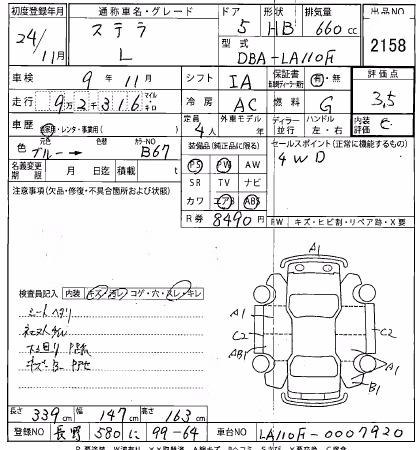 初度登録年月 通称車名・グレード ドア 形状 排気量 出品NO
24/11月 ステラ L 5 HB 660cc 2158
型式 DBA-LA110F
車検 9年11月 シフト IA 保証書 有・無 評価点
走行 9万2千316 マイル キロ 冷房 AC 燃料 G 3,5
車歴 自家用・レンタ・事業用( ) 定員 4人 外車モデル 年 ディーラー 並行 ハンドル 左・右 内装評価 C
色 元色 ブルー→ 色替 カラーNO B67 装備品(純正品に限る) セールスポイント(正常に機能するもの)
PS PW AW 4WD
名義変更期限 月 日迄 積載 t SR TV ナビ
注意事項(欠品・修復・不具合箇所および状態) カワ エアB ABS
R券 8490円 FW キズ・ヒビ割・リペア跡・X要
A1
検査員記入 内装 キズ・汚レ コゲ・穴・スレ・キレ
シートヘタリ A1
C2 C2
下回り AB1 A1
B1
長さ 339cm 幅 147cm 高さ 163cm
登録NO 長野 580 に 99-64 車台NO LA110F-0007920